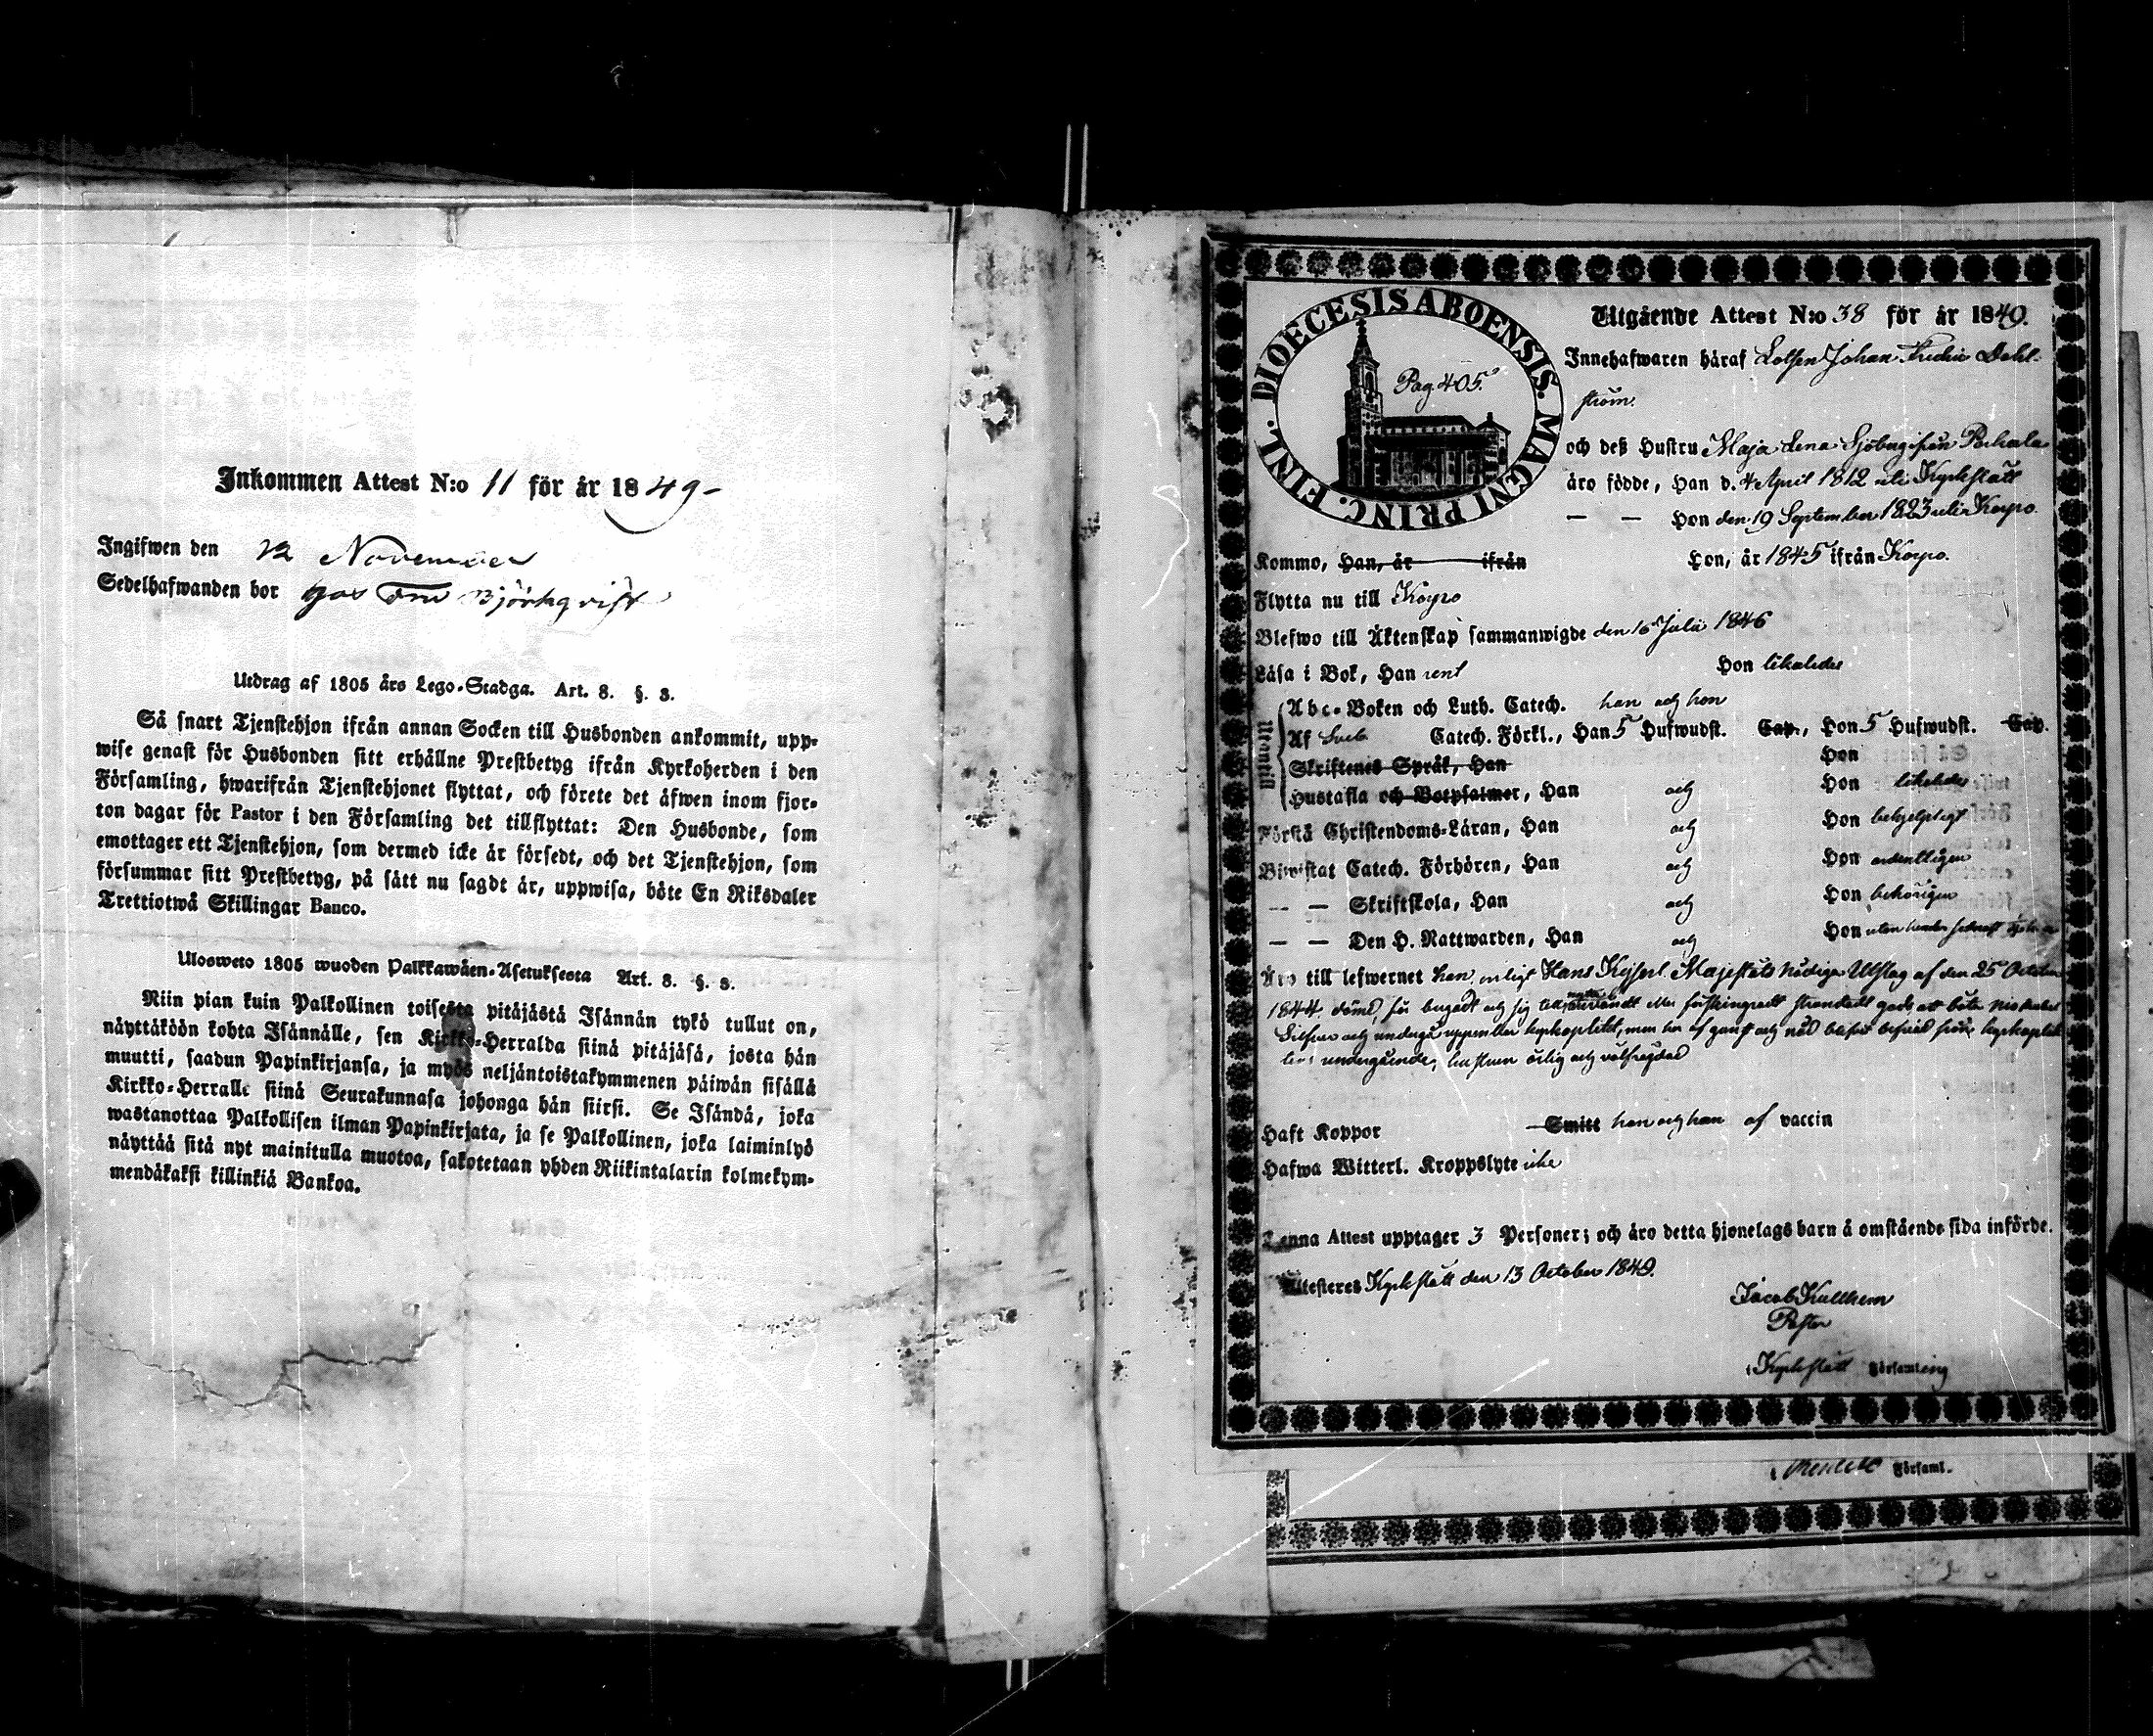 Inkommen Attest N:o 11 för år 1849-
Ingifwen den 12 November
Sedelhafwanden bor hos Fru Björkqvist
Utdrag af 1805 års Lego-Stadga. Art. 8. §. 3.
Så snart Tjenstehjon ifrån annan Socken till Husbonden ankommit, upp-
wise genast för Husbonden sitt erhållne Prestbetyg ifrån Kyrkoherden i den
Församling, hwarifrån Tjenstehjonet flyttat, och förete det äfwen inom fjor-
ton dagar för Pastor i den Församling det tillflyttat: Den Husbonde, som
emottager ett Tjenstehjon, som dermed icke är försedt, och det Tjenstehjon, som
försummar sitt Prestbetyg, på sätt nu sagdt är, uppwisa, böte En Riksdaler
Trettiotwå Skillingar Banco.
Ulosweto 1805 wuoden Palkkawäen-Asetuksesta Art. 8. §. 3.
Niin pian kuin Palkollinen toisesta pitäjästä Isännän tykö tullut on,
näyttäköön kohta Isännälle, sen Kirkko-Herralda siinä pitäjäsä, josta hän
muutti, saadun Papinkirjansa, ja myös neljäntoistakymmenen päiwän sisällä
Kirkko-Herralle siinä Seurakunnasa johonga hän siirsi. Se Isändä, joka
wastanottaa Palkollisen ilman Papinkirjata, ja se Palkollinen, joka laiminlyö
näyttää sitä nyt mainitulla muotoa, sakotetaan yhden Riikintalarin kolmekym-
mendäkaksi killinkiä Bankoa.
DIOECESIS ABOENSIS. MAGNI PRINC. FINL.
Pag. 405.
Utgående Attest N:o 38 för år 1849.
Innehafwaren häraf Lotsen Johan Fredric Dahl-
ström.
och deß Hustru Maja Lena Sjöberg ifrån Porkala
äro födde, Han d. 4 April 1812 uti Kyrkslätt
— — Hon den 19 September 1823 uti Korpo.
Kommo, Han, år ifrån Hon, år 1845 ifrån Korpo.
Flytta nu till Korpo
Blefwo till Äktenskap sammanwigde den 16 Julii 1846
Läsa i Bok, Han rent Hon likaledes
Utantill
Abc-Boken och Luth. Catech. han och hon
Af Sveb. Catech. Förkl., Han 5 Hufwudst. Cap., Hon 5 Hufwudst. Cap.
Skriftenes Språk, Han Hon
Hustafla och Botpsalmer, Han och Hon likaledes
Förstå Christendoms-Läran, Han och Hon behjelpligt
Biwistat Catech. Förhören, Han och Hon ordentligen
— — Skriftskola, Han och Hon behörigen
— — Den H. Nattwarden, Han och Hon utan
Äro till lefwernet han, enligt Hans Kejserl. Majestäts Nådiga Utslag af den 25 October
1844, dömd, för bugadt och sig till strandadt gods, att böta
Silfver och undergå uppenbar kyrkoplikt, men har af gunst och nåd blifvit befriad från kyrkoplik-
tens undergående; hustrun ärlig och välfrejdad
Haft Koppor Smitt han och hon af vaccin
Hafwa Witterl. Kroppslyte icke
Denna Attest upptager 3 Personer; och äro detta hjonelags barn å omstående sida införde.
Attesteres Kyrkslätt den 13 October 1849.
Jacob Kullhem
Pastor
i Kyrkslätt Församling
Församl.